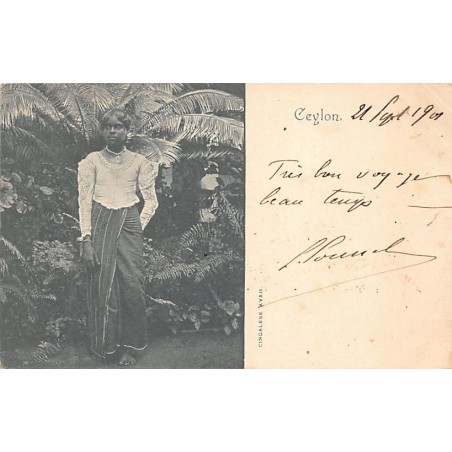 Ceylon. 21 Sept 1901
Très bon voyage
beau temps
CINGALESE AYAH